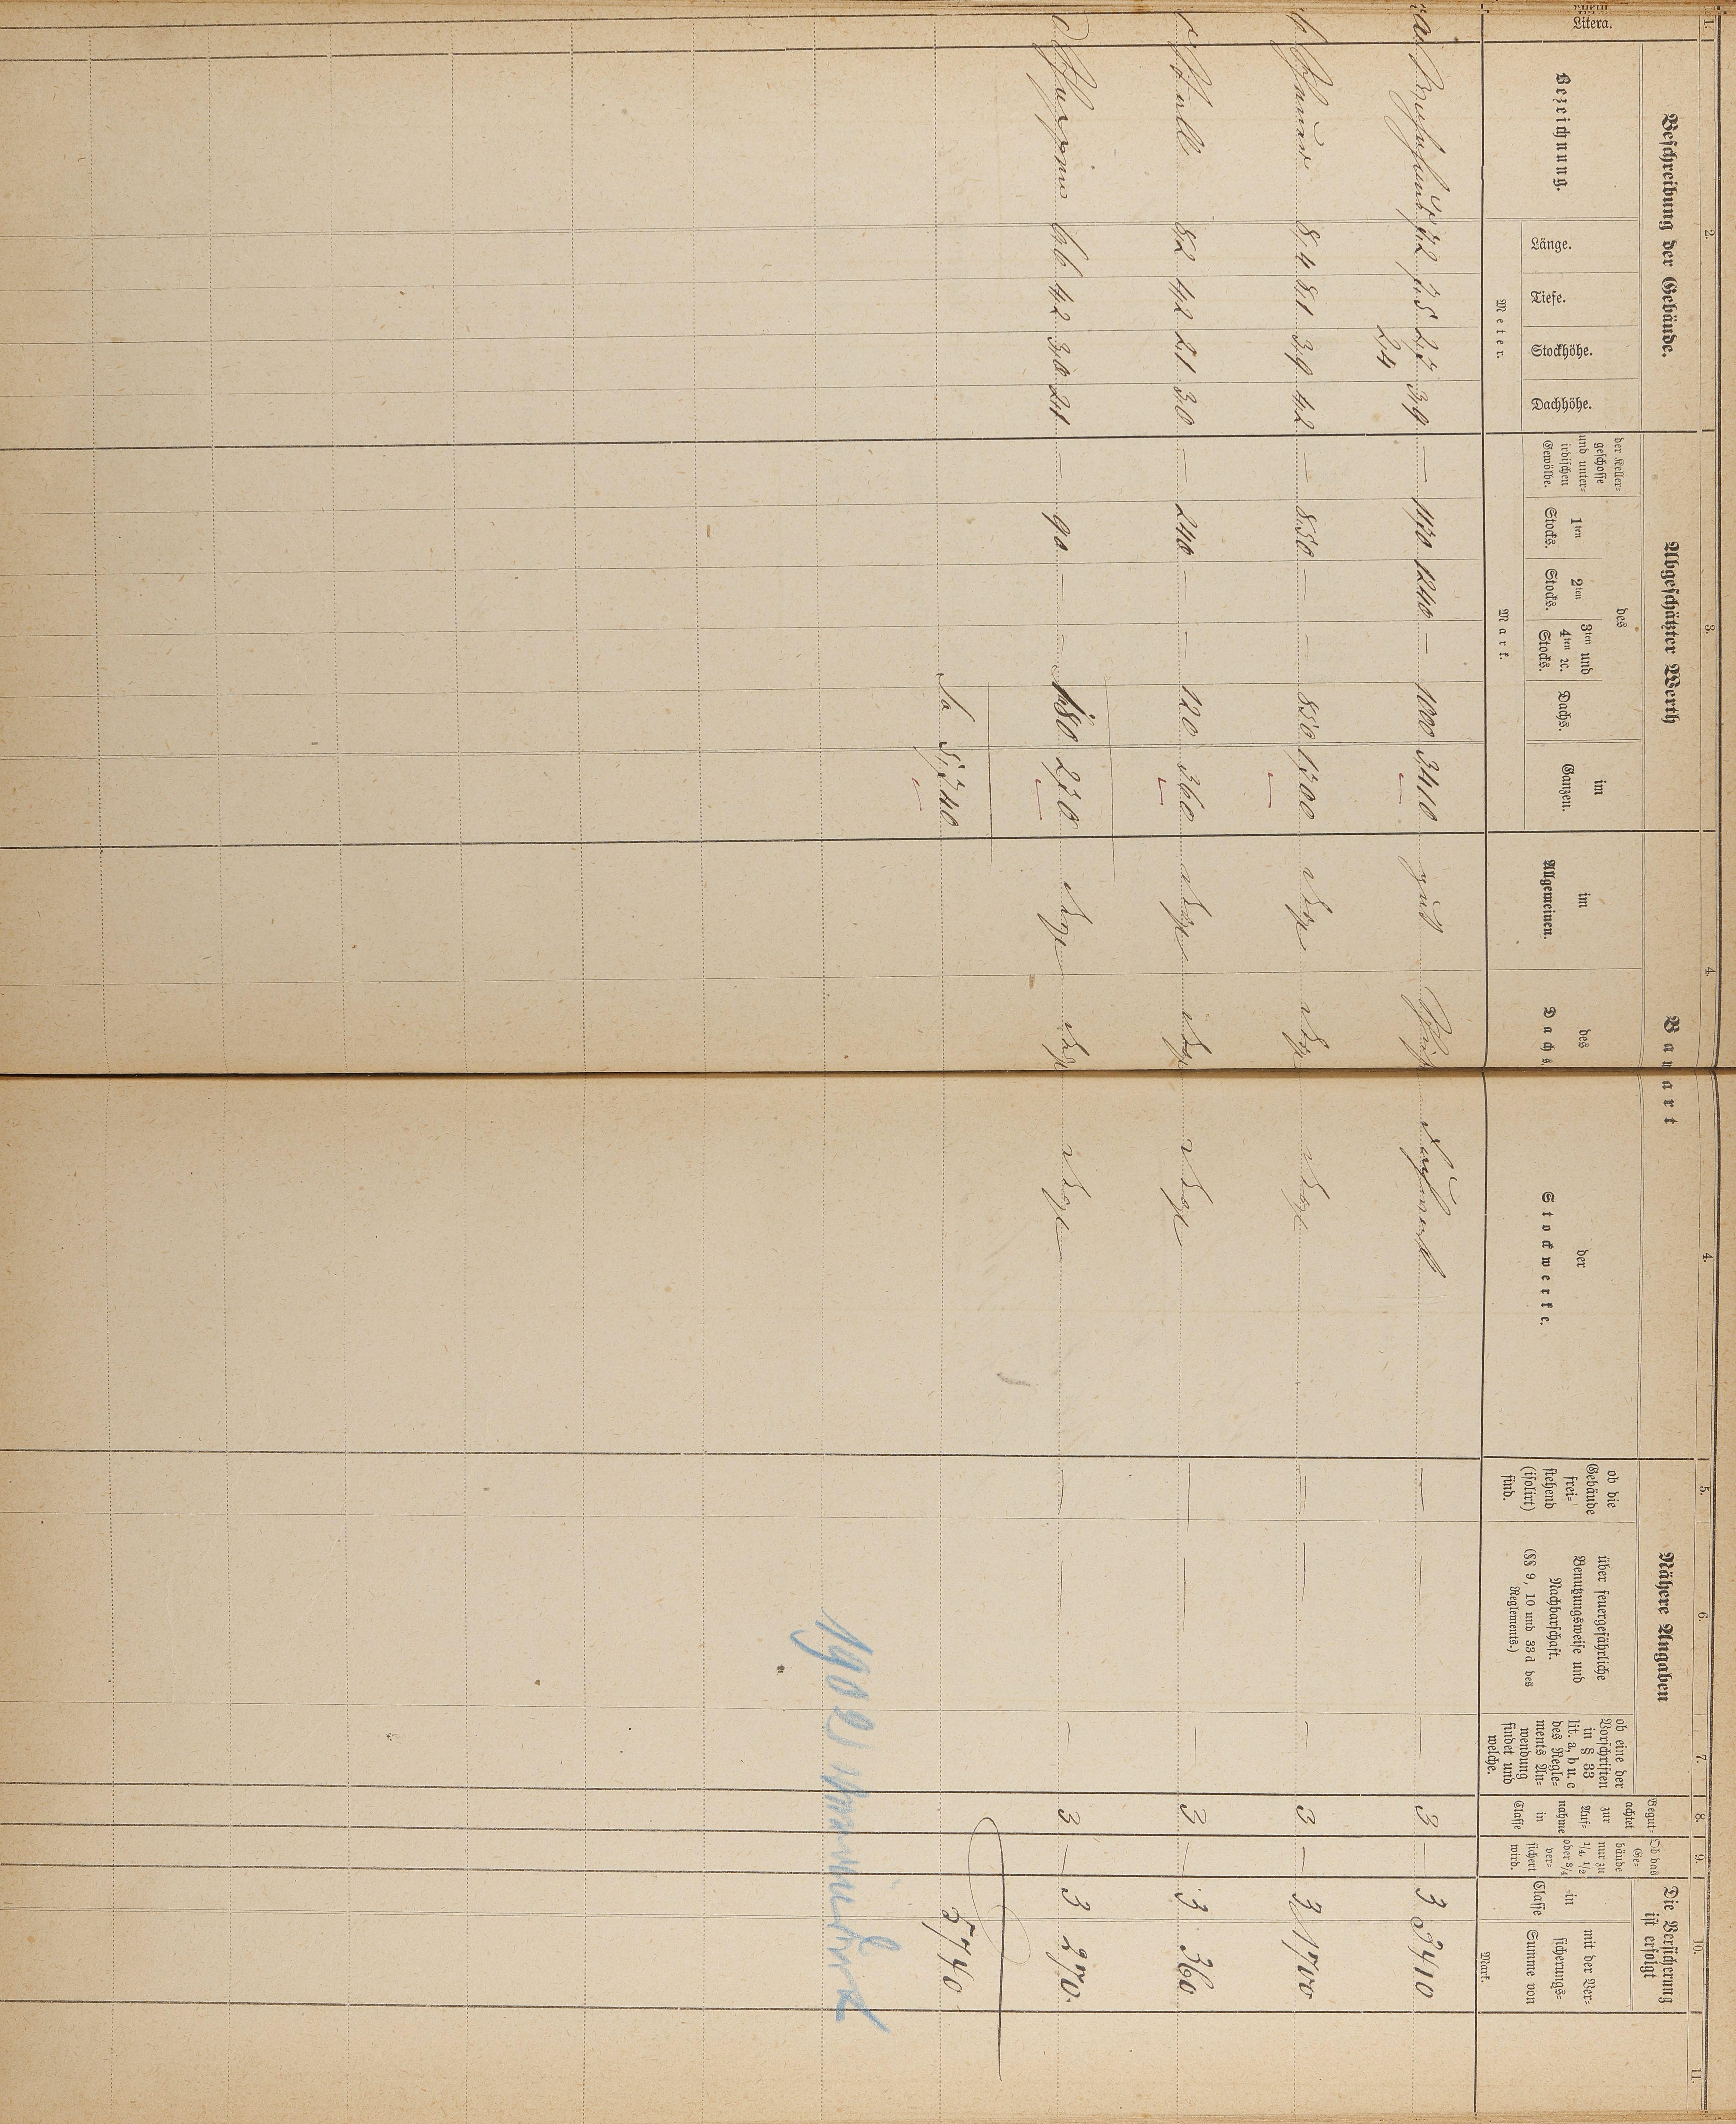 1. 2. 3. 4. 4. 5. 6. 7. 8. 9. 10. 11.
Litera.
Beschreibung der Gebäude.
Bezeichnung.
Länge.
Tiefe.
Stockhöhe.
Dachhöhe.
Meter.
Abgeschätzter Werth
des
der Keller=
geschosse
und unter=
irdischen
Gewölbe.
1ten
Stocks.
2ten
Stocks.
3ten und
4ten ꝛc.
Stocks.
Dachs.
im
Ganzen.
Mark.
Bauart
im
Allgemeinen.
des
Dachs.
der
Stockwerke.
Nähere Angaben
ob die
Gebäude
frei=
stehend
(isolirt)
sind.
über feuergefährliche
Benutzungsweise und
Nachbarschaft.
(§§ 9, 10 und 33 d des
Reglements.)
ob eine der
Vorschriften
in § 33
lit. a, b u. c
des Regle=
ments An=
wendung
findet und
welche.
Begut=
achtet
zur
Auf=
nahme
in
Classe
Ob das
Ge=
bäude
nur zu
1/4, 1/2
oder 3/4
ver=
sichert
wird.
Die Versicherung
ist erfolgt
in
Classe
mit der Ver=
sicherungs=
Summe von
Mark.
a Wohnhaus 7,2 7,5 2,7 3,9 — 1170 1240 — 1000 3410 gut Ziegel Fachwerk — — — 3 — 3 3410
2,4
b Scheuer 8,4 8,1 3,9 4,2 — 850 — — 850 1700 dsgl dsgl dsgl — — — 3 — 3 1700
c Stall 8,2 4,2 2,1 3,0 — 240 — — 120 360 dsgl dsgl dsgl — — — 3 — 3 360
d Schuppen 6,6 4,2 3,0 2,1 — 90 — — 180 270 dsgl dsgl dsgl — — — 3 — 3 270.
Sa 5,740 5740